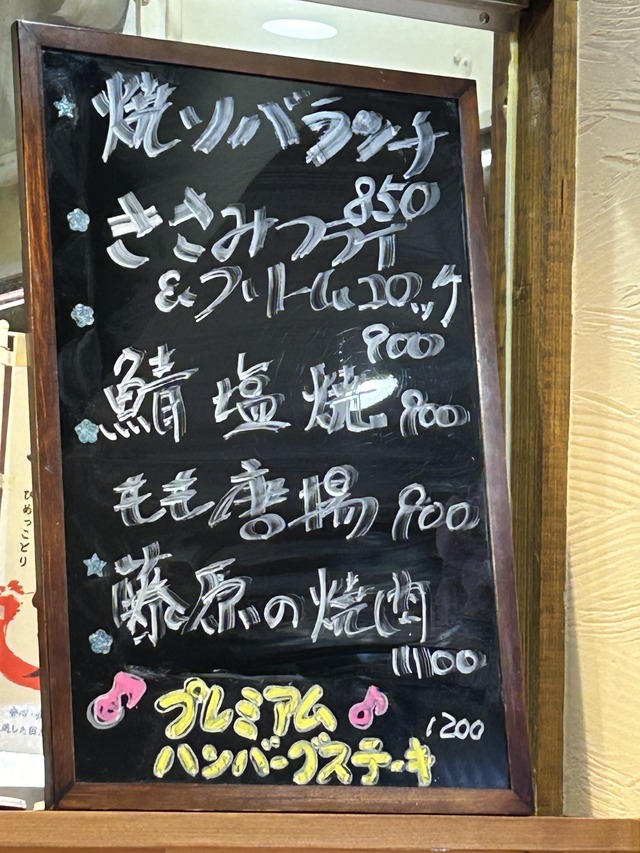 焼ソバランチ
850
ささみフライ
&クリームコロッケ
900
鯖塩焼 900
もも唐揚 900
藤原の焼肉
1100
プレミアム
ハンバーグステーキ
1200
ひめっこどり